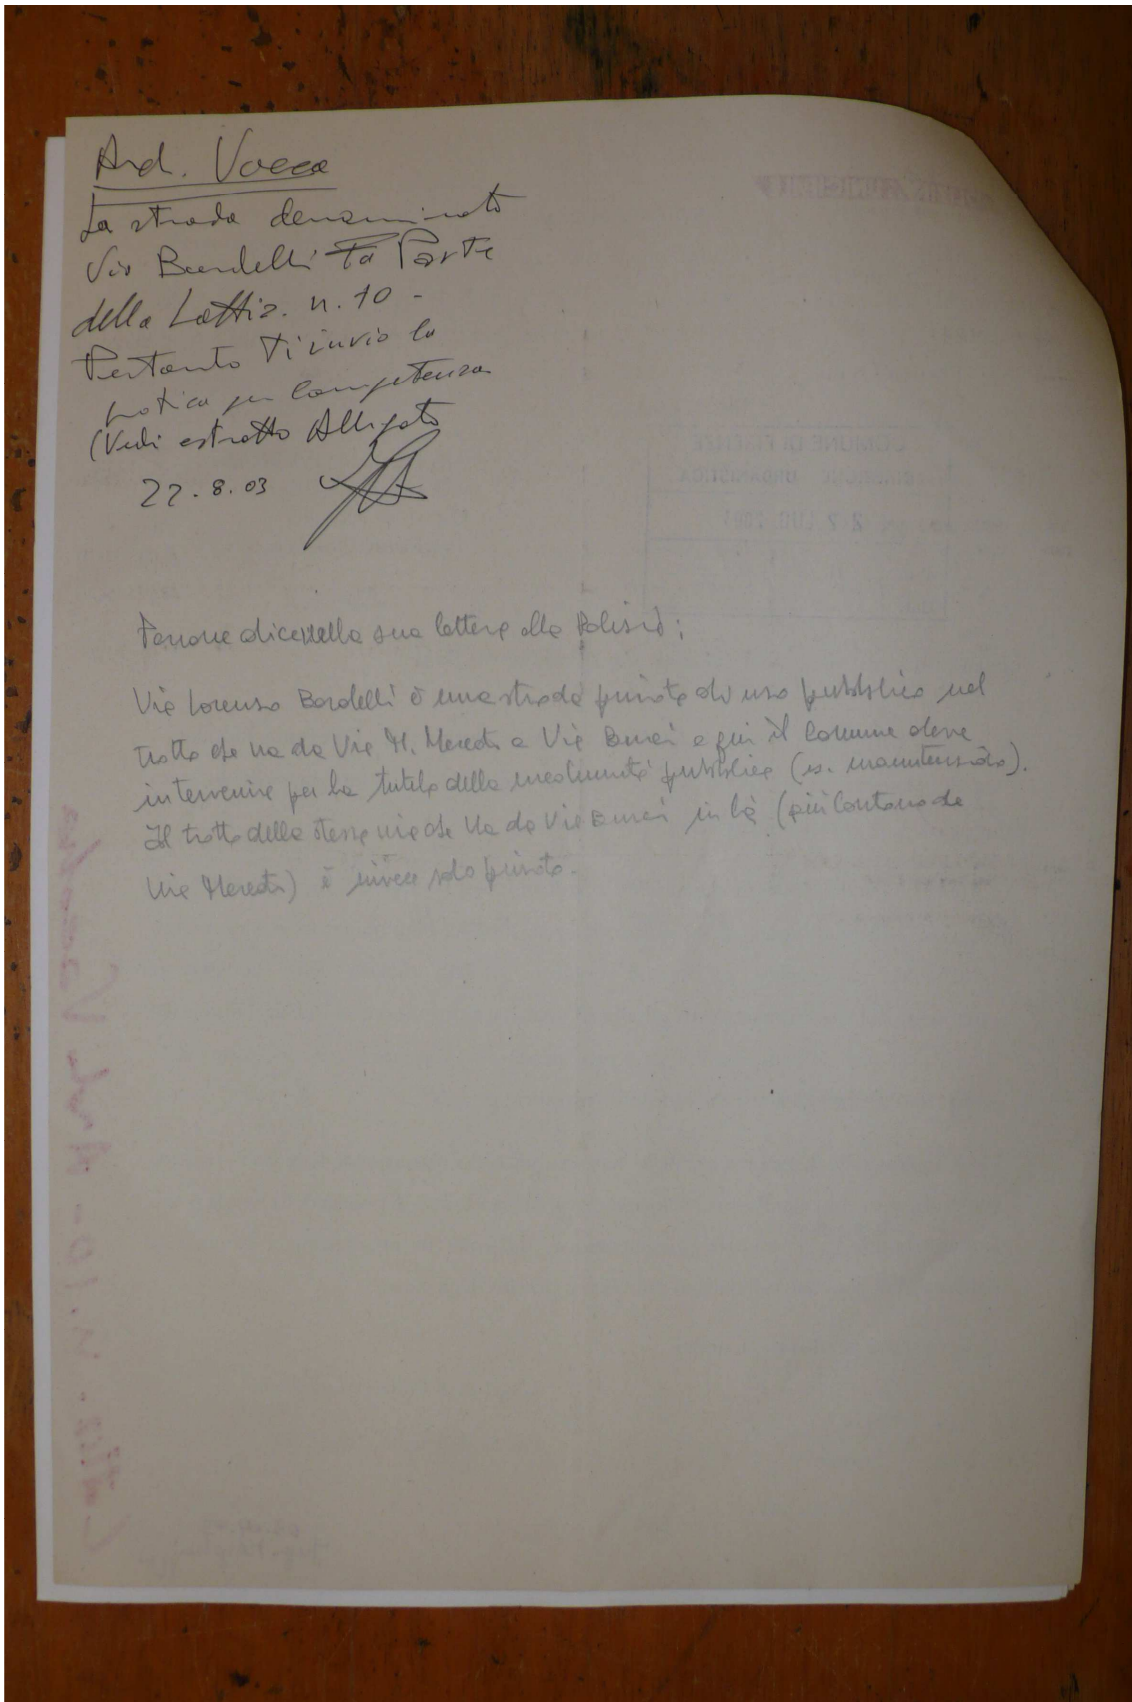 Arch. Vocca
La strada denominata
Via Bardelli Fa Parte
della Lottiz. n. 10 -
Pertanto Ti invio la
pratica per competenza
(Vedi estratto Allegato
22.8.03
dice nella sua lettera alla Polisid:
Via Lorenzo Bardelli è una strada privata di uso pubblico nel
tratto che va da Via M. a Via e qui il Comune deve
intervenire per la tutela della incolumità pubblica (es. manutenzione).
Il tratto della stessa via che va da Via in là (più lontano da
Via ) è invece solo privato.
COMUNE DI FIRENZE
URBANISTICA
Lottiz. n. 10 - Arch.